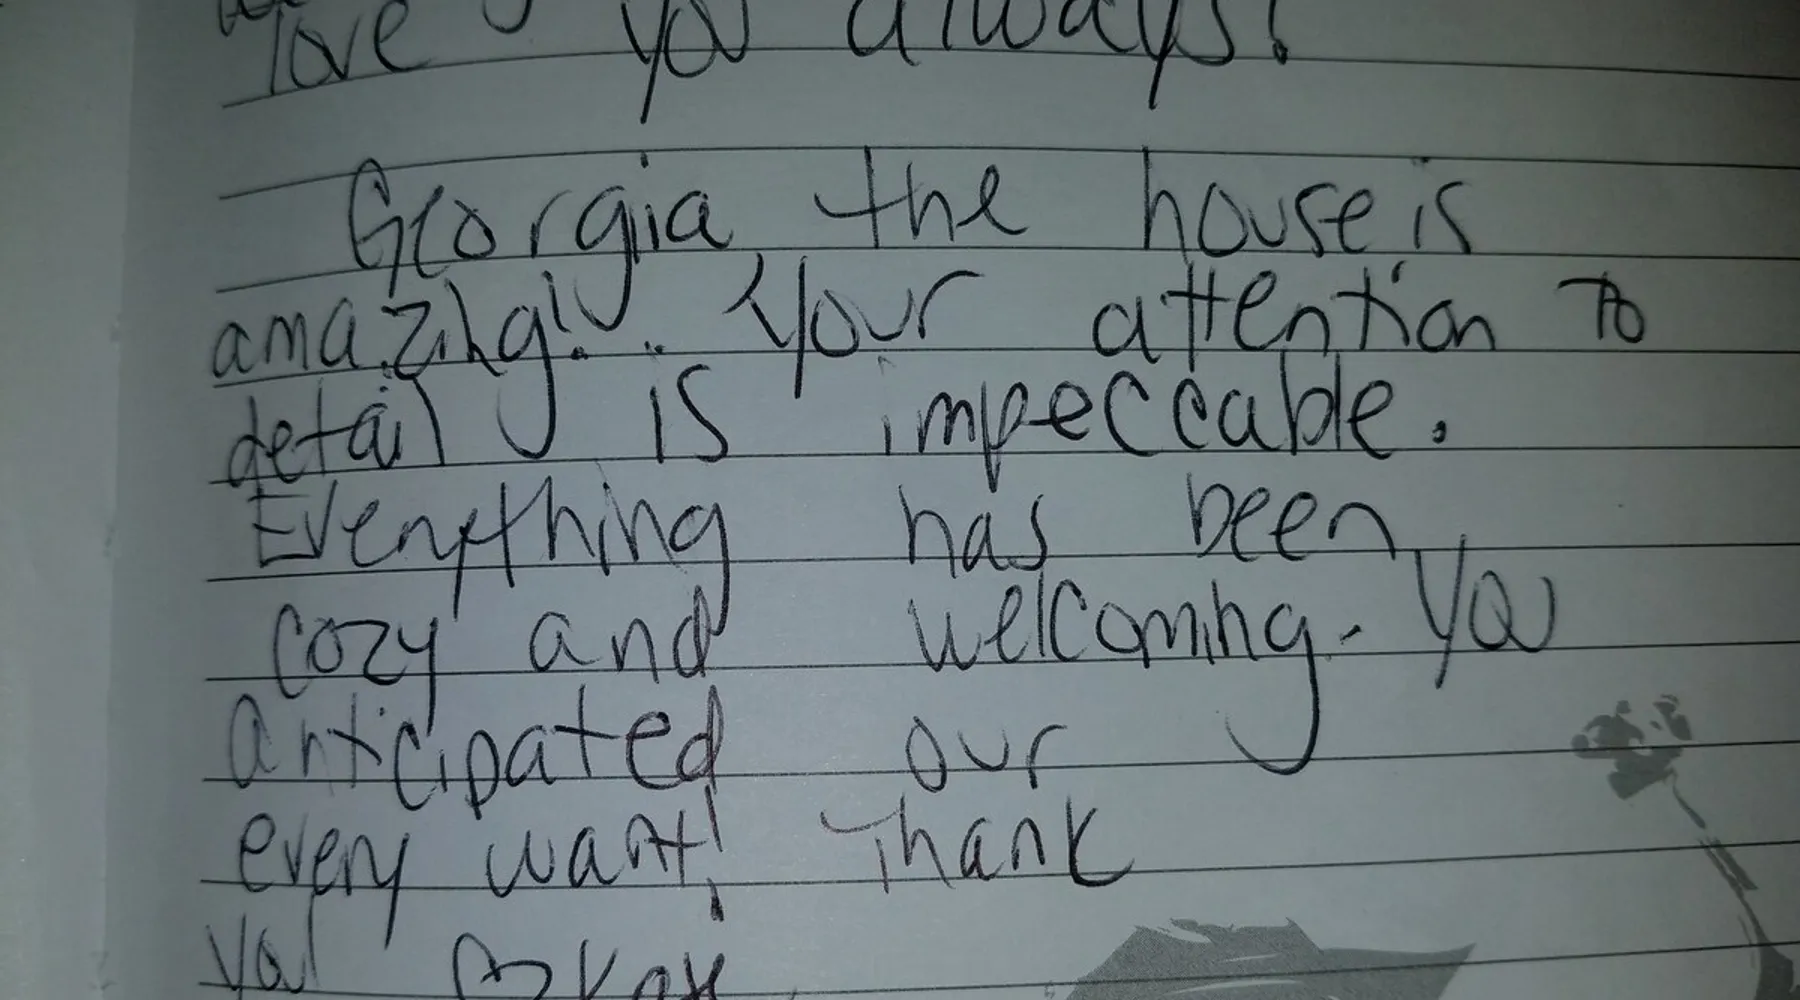 love you always!
Georgia the house is
amazing!! Your attention to
detail is impeccable.
Everything has been
cozy and welcoming. You
anticipated our
every want! Thank
you